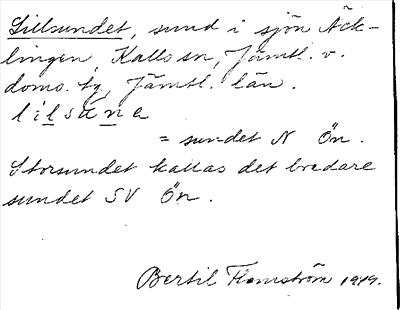 Lillsundet, sund i sjön Äck-
lingen, Kalls sn, Jämtl. v.
doms. tg, Jämtl. län.
lilsúne
= sundet N Ön.
Storsundet kallas det bredare
sundet SV Ön.
Bertil Flemström 1949.